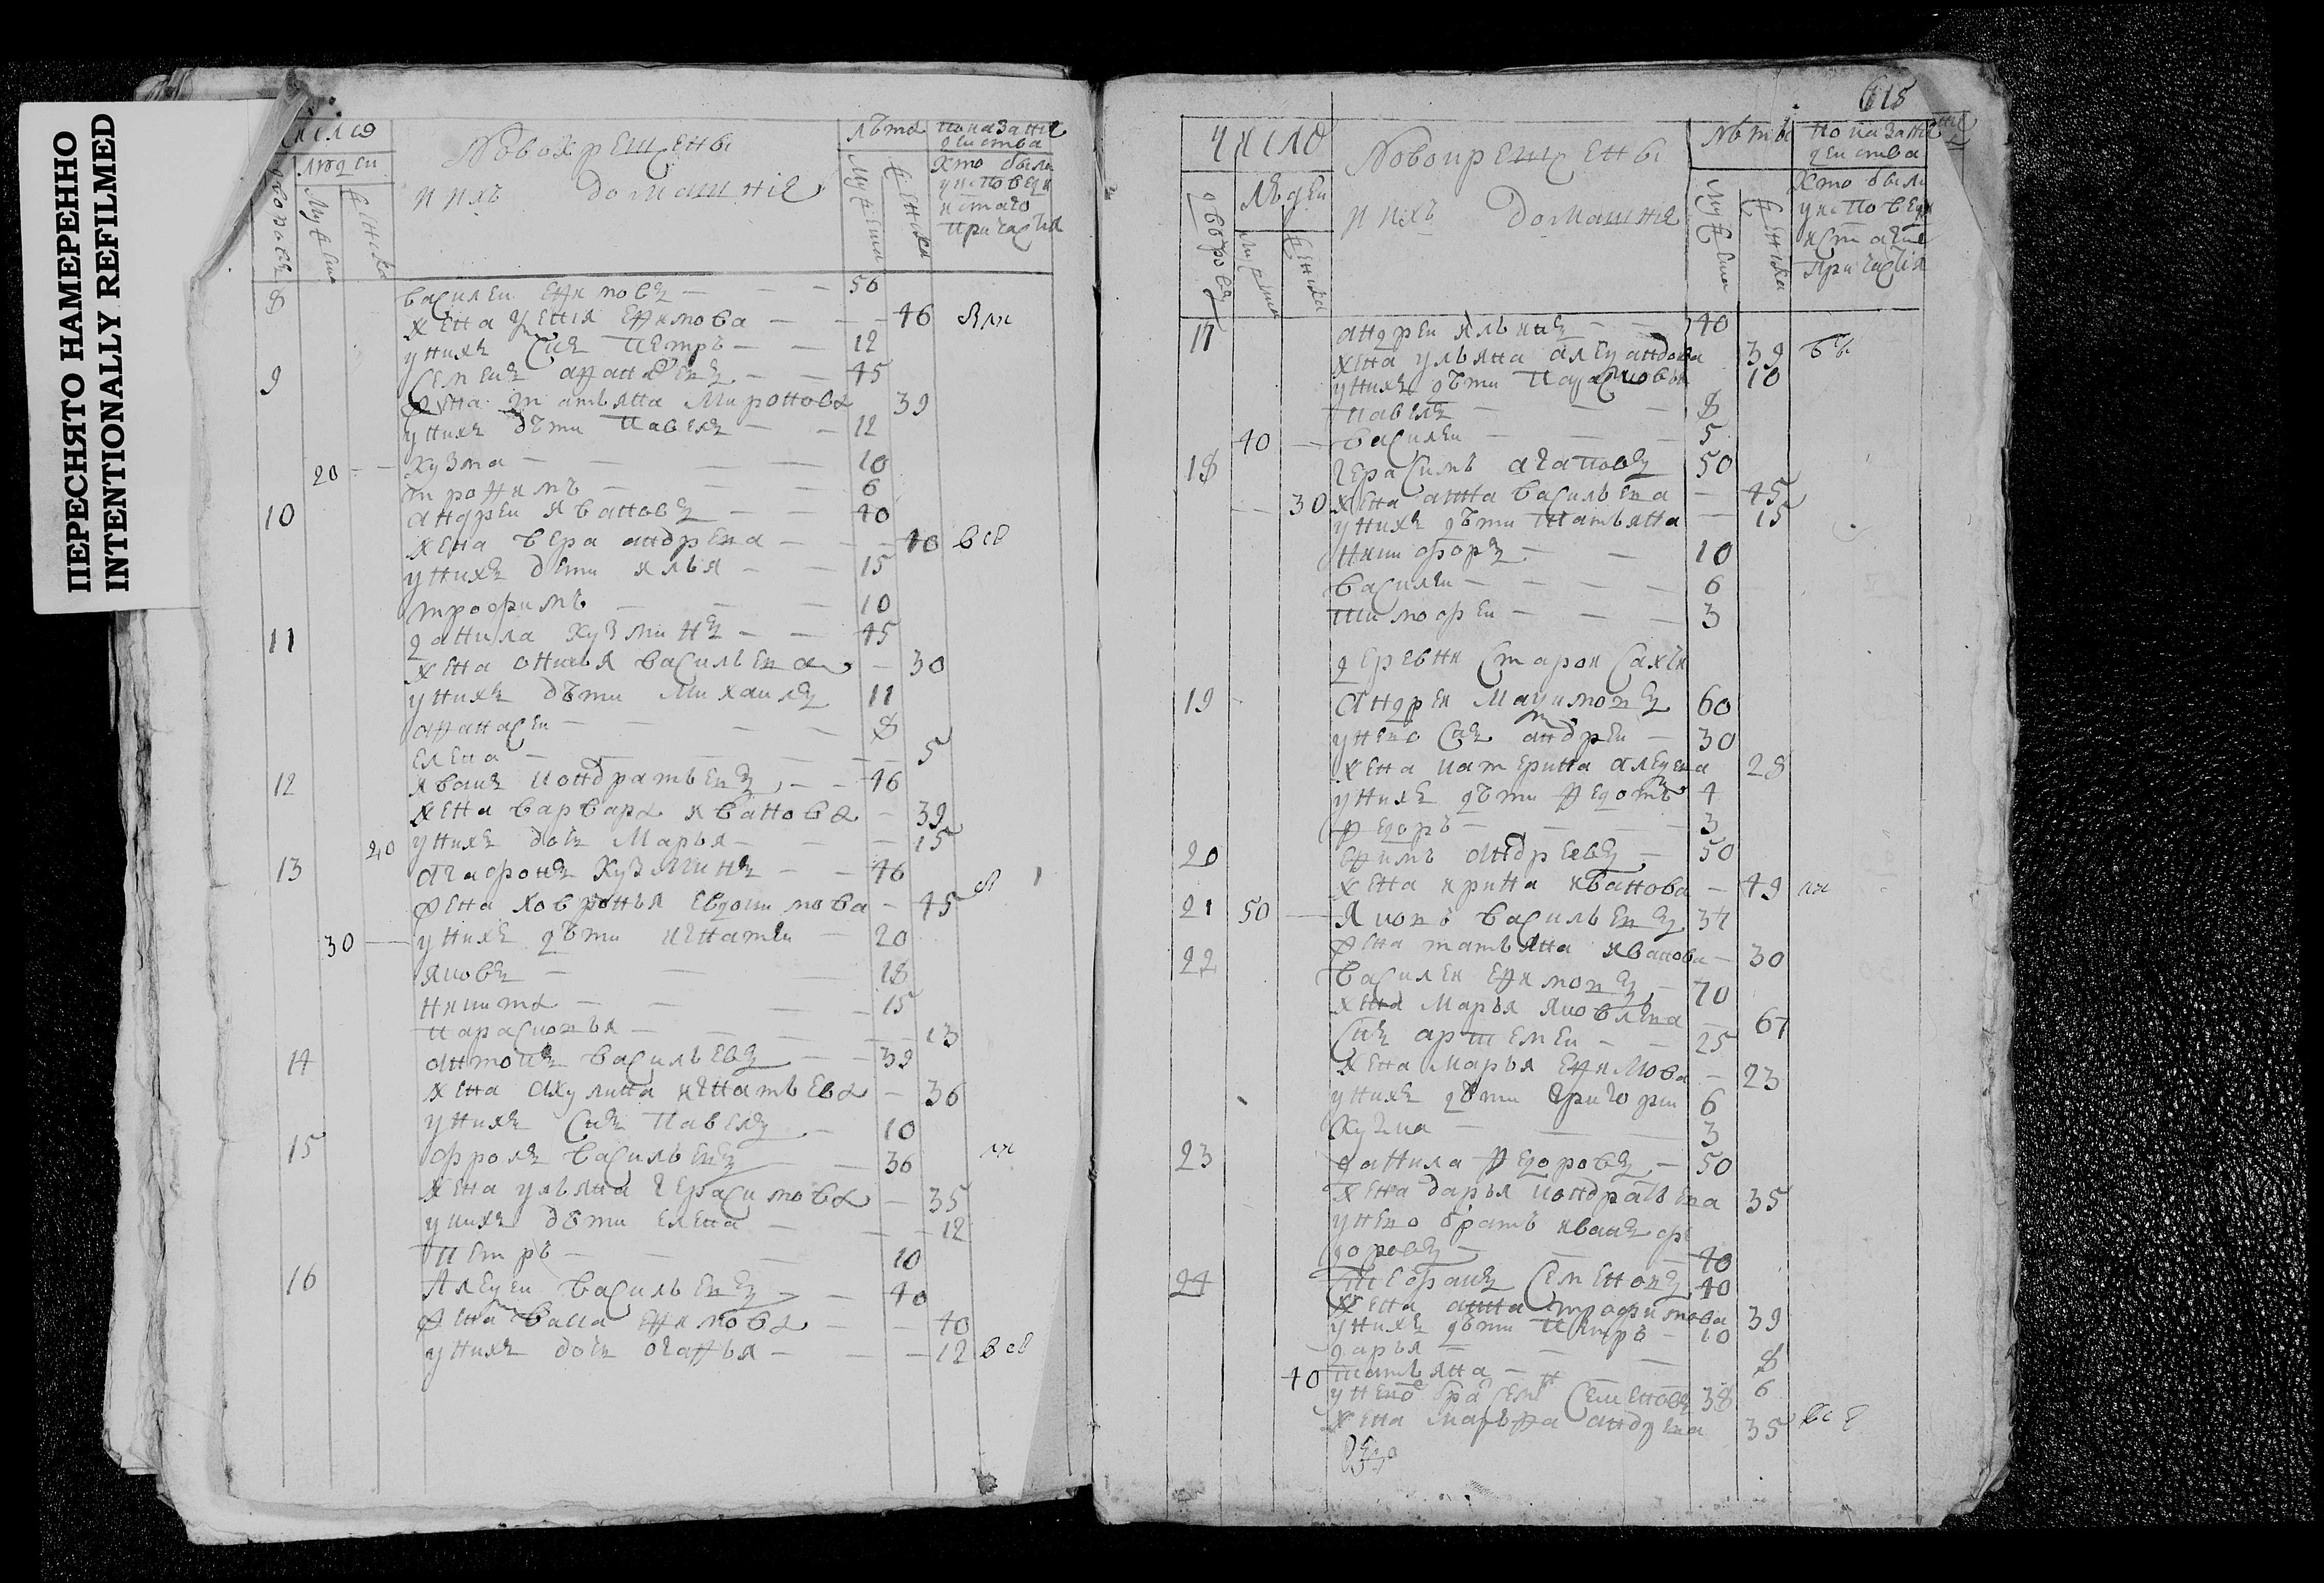 ПЕРЕСНЯТО НАМЕРЕННО
INTENTIONALLY REFILMED
число
людеи
мужеска
женска
Новокрещены
и ихъ домашние
лѣта
мужеска
женска
показание
деиства
хто были
у исповеди
и стаго
причастия
8 василеи ефимовъ 56
жена ефимова 46
у нихъ снъ петръ 12
9 семенъ афанасевъ 45
жена татьяна миронова 39
у нихъ дѣти павелъ 12
20 кузма 10
трофимъ 6
10 андреи ивановъ 40
жена вера андреева 40 всѣ
у нихъ дети илья 15
трофимъ 10
11 данила кузминъ 45
жена васильева 30
у нихъ дѣти михаилъ 11
афанасеи 8
елена 5
12 иванъ кондратьевъ 46
жена варвара иванова 39
20 у нихъ дочь марья 15
13 агафонъ кузминъ 46
жена ховронья евдокимова 45
30 у нихъ дѣти игнатеи 20
яковъ 18
никита 15
парасковья 13
14 антонъ васильевъ 39
жена акулина игнатьева 36
у нихъ снъ павелъ 10
15 фролъ васильевъ 36
жена ульяна герасимова 35
у нихъ дѣти елена 12
петръ 10
16 алеѯеи васильевъ 40
жена ефимова 40
у нихъ дочь агафья 12 всѣ
615
число
дворовъ
людеи
мужеска
женска
Новокрещены
и ихъ домашние
лѣта
мужеска
женска
показание
деиства
хто были
у исповеди
и стаго
причастия
17 андреи ильинъ 40
жена ульяна 39
у нихъ дѣти парасковья 10
павелъ 8
40 василеи 5
18 герасимъ агаповъ 50
30 жена анна васильева 45
у нихъ дѣти татьяна 15
никифоръ 10
василеи 6
тимофеи 3
деревни старои
19 андреи маѯимовъ 60
у него снъ андреи 30
жена катерина алеѯеева 28
у нихъ дѣти федотъ 4
федоръ 3
20 ефимъ андреевъ 50
жена ирина иванова 49
21 50 яковъ васильевъ 34
жена татьяна иванова 30
22 василеи ефимовъ 70
жена марья яковлева 67
снъ артемеи 25
жена марья ефимова 23
у нихъ дѣти григореи 6
кузма 3
23 данила федоровъ 50
жена дарья кондратьева 35
у него братъ иванъ фе
доровъ 40
24 стефанъ семеновъ 40
жена анна трофимова 39
у нихъ дѣти петръ 10
дарья 8
40 татьяна 6
у него бра семенъ семеновъ 38
жена марьфа андреева 35 всѣ